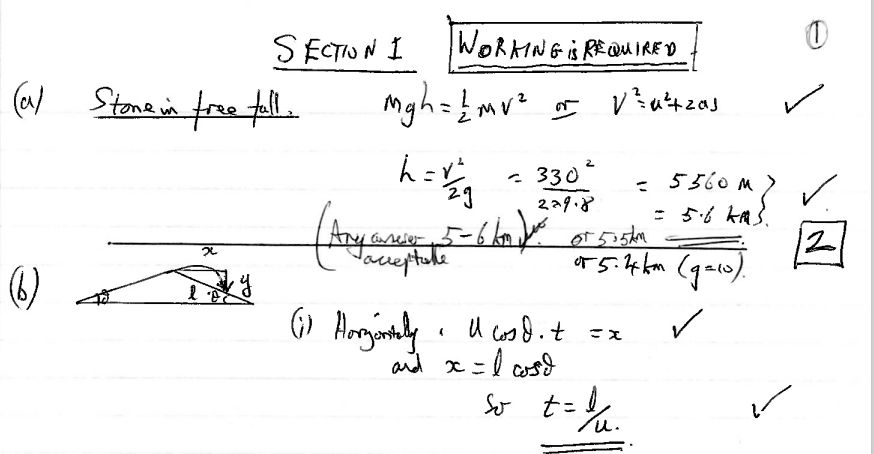 ①
SECTION I WORKING IS REQUIRED
(a) Stone in free fall. mgh = ½ mv² or v² = u² + 2as ✓
h = v²/2g = 330²/2×9.8 = 5560 m
= 5.6 km ✓
(Any answer 5-6 km) or 5.5 km
acceptable or 5.4 km (g=10). 2
(b) x
θ l θ y
(i) Horizontally, u cosθ.t = x ✓
and x = l cosθ
So t = l/u. ✓